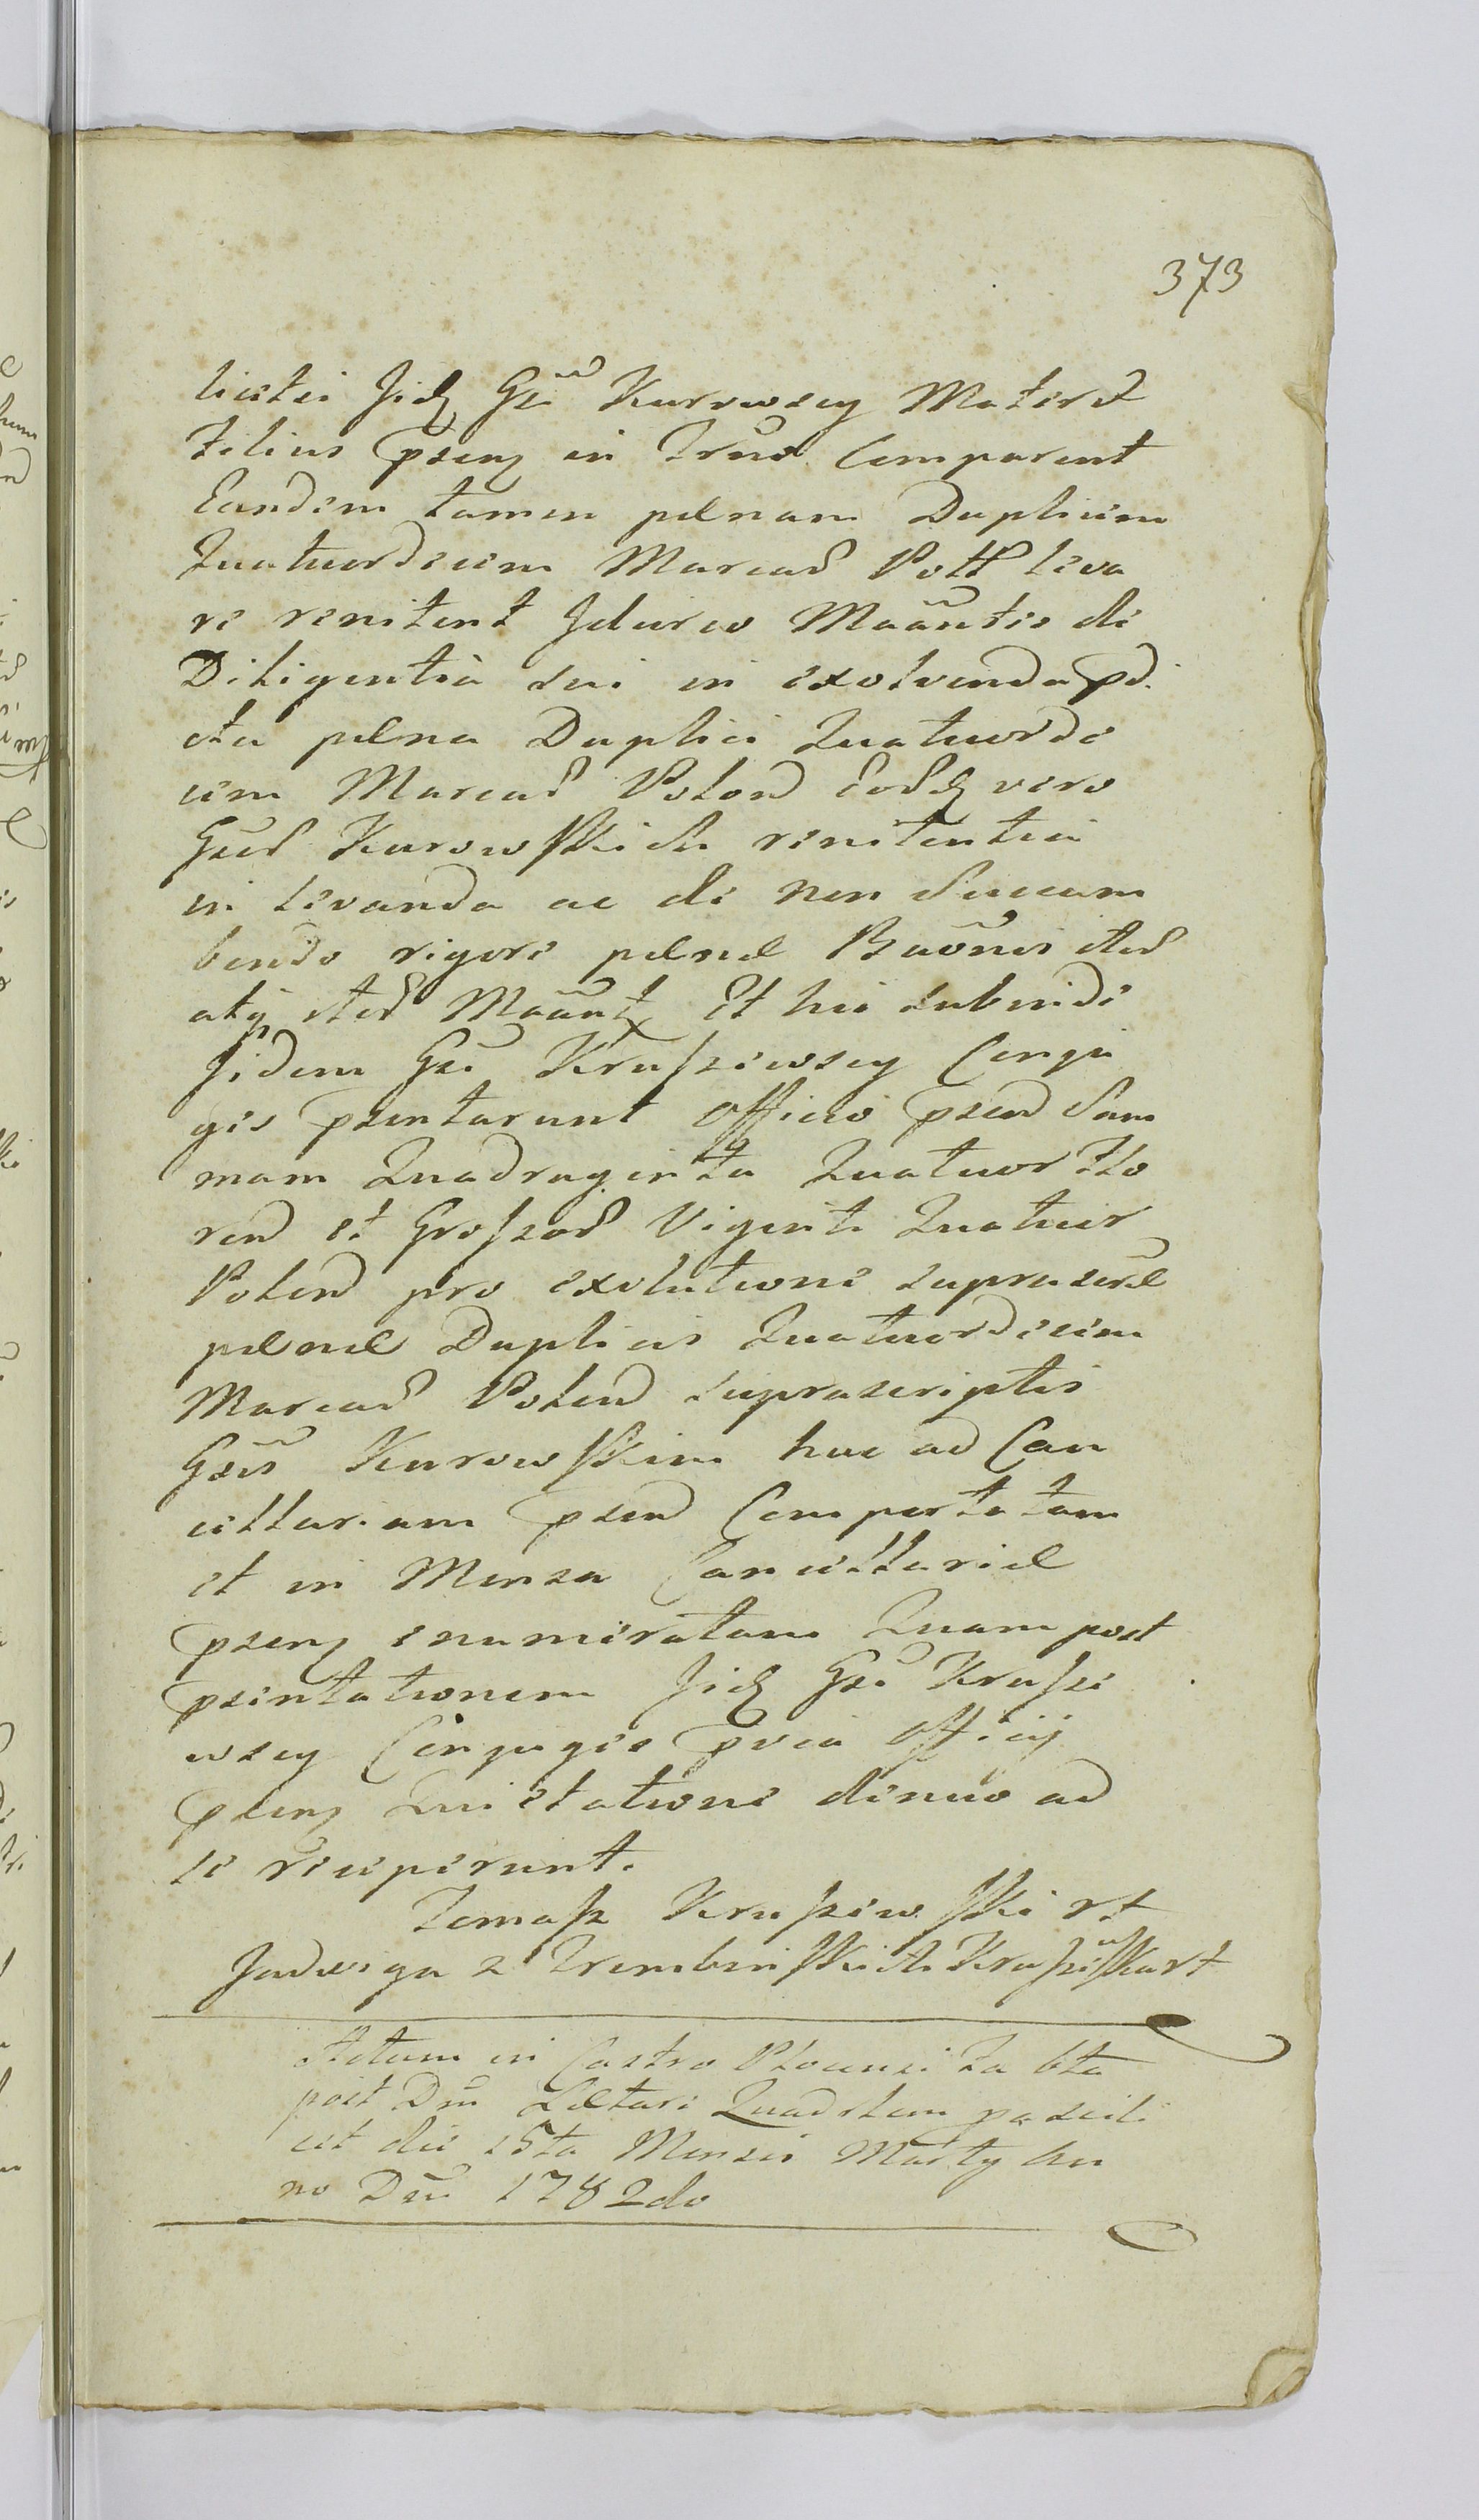 373
licet ii Jidq Gsi Kurowscy Mater et
Filius psenq in Trno Comparent
Eandem tamen pænam Duplicem
Quatuordecim Marcar Poll leva
re renitent Idcirco Mãantes de
Diligentia sui in exolvenda pd:
cta pæna Duplici Quatuorde
cim Marcar Polon Eordq vero
Gsor Kurowskich renitentia
in levanda ac de non Succum
bendo rigore pænæ Baõnis
atq Mãant Et hic subinde
Jidem Gsi Kruszewscy Conju
ges psentarunt Officio psen Sum
mam Quadraginta Quatuor Flo
ren et Groszor Viginti Quatuor
Polon pro exolutione suprascræ
pænæ Duplicis Quatuordecim
Marcar Polon suprascriptis
Gsis Kurowskim huc ad Can
cellariam psen Comportatam
et in Mensa Cancellariæ
psenq enumeratam Quam post
psentationem Jidq Gsi Krusze
wscy Conjuges pvia Officij
psenq Quietatione denuo ad
se receperunt.
Tomasz Kruszewski rt
Jadwiga z Trembinskich Kruszewska rt
Actum in Castro Plocensi Sabbto
post Dm Lætare Quadrlem
die 15ta Mensis Martij An
no Dni 1782do